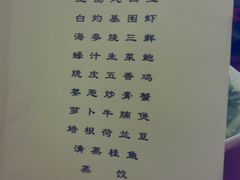 白灼基围虾
海参烧三鲜
蠔汁生菜鲍
脆皮五香鸡
姜葱炒膏蟹
萝卜牛腩煲
培根荷兰豆
清蒸桂鱼
蒸饺